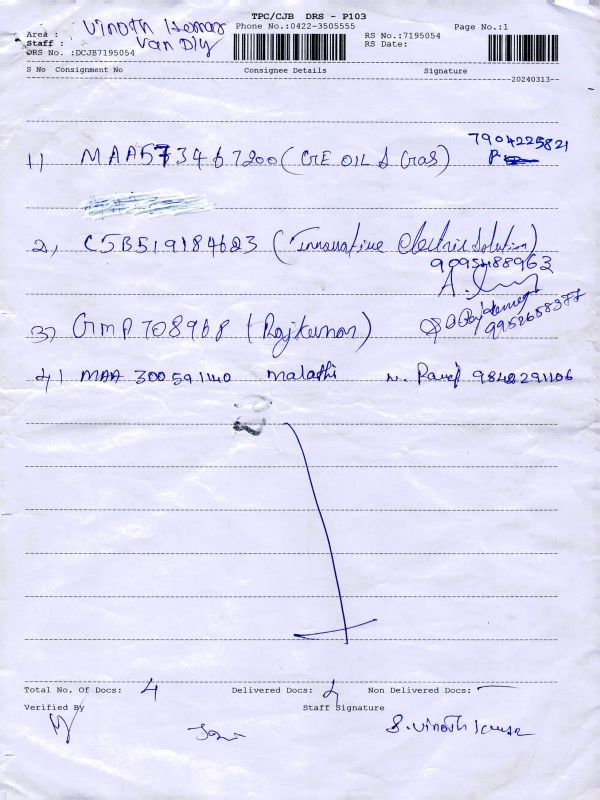 TPC/CJB DRS - P103
Phone No.:0422-3505555 Page No.:1
Area : Vinoth Kumar
Staff : Van Dly
RS No.:7195054
RS Date:
DRS No. :DCJB7195054
S No Consignment No Consignee Details Signature
20240313
1) MAA573467200 (GE OIL & Gas) 7904225821
2) CJB519184623 (Innovative Electric Solution)
9095488963
3) GMA708968 (Rajkumar) 9952658377
4) MAA 300591140 Malathi 9842291106
Total No. Of Docs: 4 Delivered Docs: 4 Non Delivered Docs: —
Verified By Staff Signature
S. Vinoth Kumar